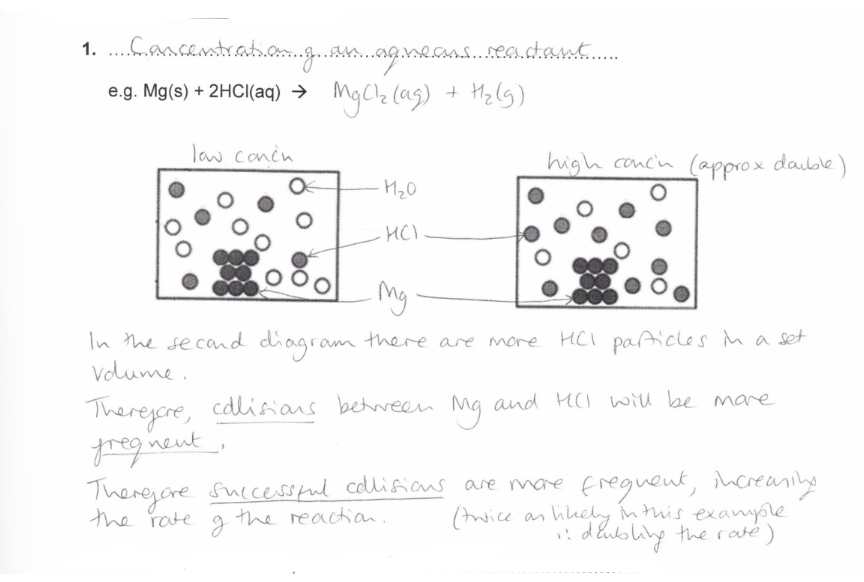 1. Concentration of an aqueous reactant
e.g. Mg(s) + 2HCl(aq) → MgCl₂(aq) + H₂(g)
low conc'n
high conc'n (approx double)
H₂O
HCl
Mg
In the second diagram there are more HCl particles in a set
volume.
Therefore, collisions between Mg and HCl will be more
frequent.
Therefore successful collisions are more frequent, increasing
the rate of the reaction. (twice as likely in this example
∴ doubling the rate)